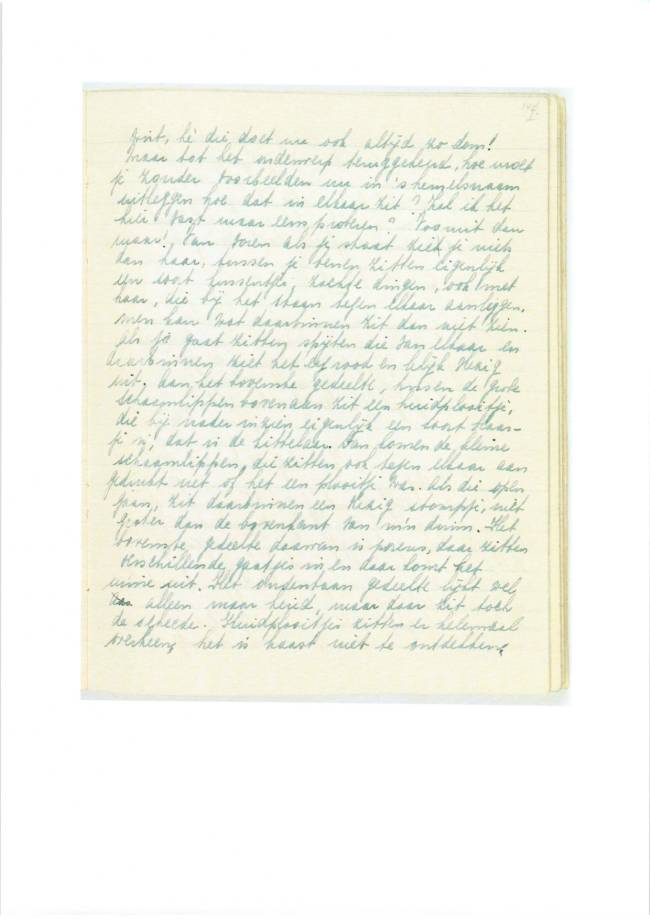 Grit, hè die doet nu ook altijd zo dom!
Maar tot het onderwerp teruggekeerd, hoe moet
je zonder voorbeelden nu in 's hemelsnaam
uitleggen hoe dat in elkaar zit? Zal ik het
hier vast maar eens proberen? Vooruit dan
maar! Van voren als je staat zie je niets
dan haar, tussen je benen zitten eigenlijk
een soort kussentjes, zachte dingen, ook met
haar, die bij het staan tegen elkaar aanliggen.
men kan wat daarbinnen zit dan niet zien.
Als je gaat zitten splijten die van elkaar en
daarbinnen ziet het erg rood en lelijk vlezig
uit. Aan het bovenste gedeelte, tussen de grote
schaamlippen bovenaan zit een huidplooitje,
die bij nader inzien eigenlijk een soort blaas-
je is, dat is de kittelaar. Dan komen de kleine
schaamlippen, die zitten ook tegen elkaar aan
gedrukt net of het een plooitje was. Als die open
gaan, zit daarbinnen een vlezig stompje, niet
groter dan de bovenkant van m'n duim. Het
bovenste gedeelte daarvan is poreus, daar zitten
verschillende gaatjes in, en daar komt het
urine uit. Het onderste gedeelte lijkt wel
alleen maar huid, maar daar zit toch
de schede. Huidplooitjes zitten er helemaal
overheen, het is haast niet te ontdekken.